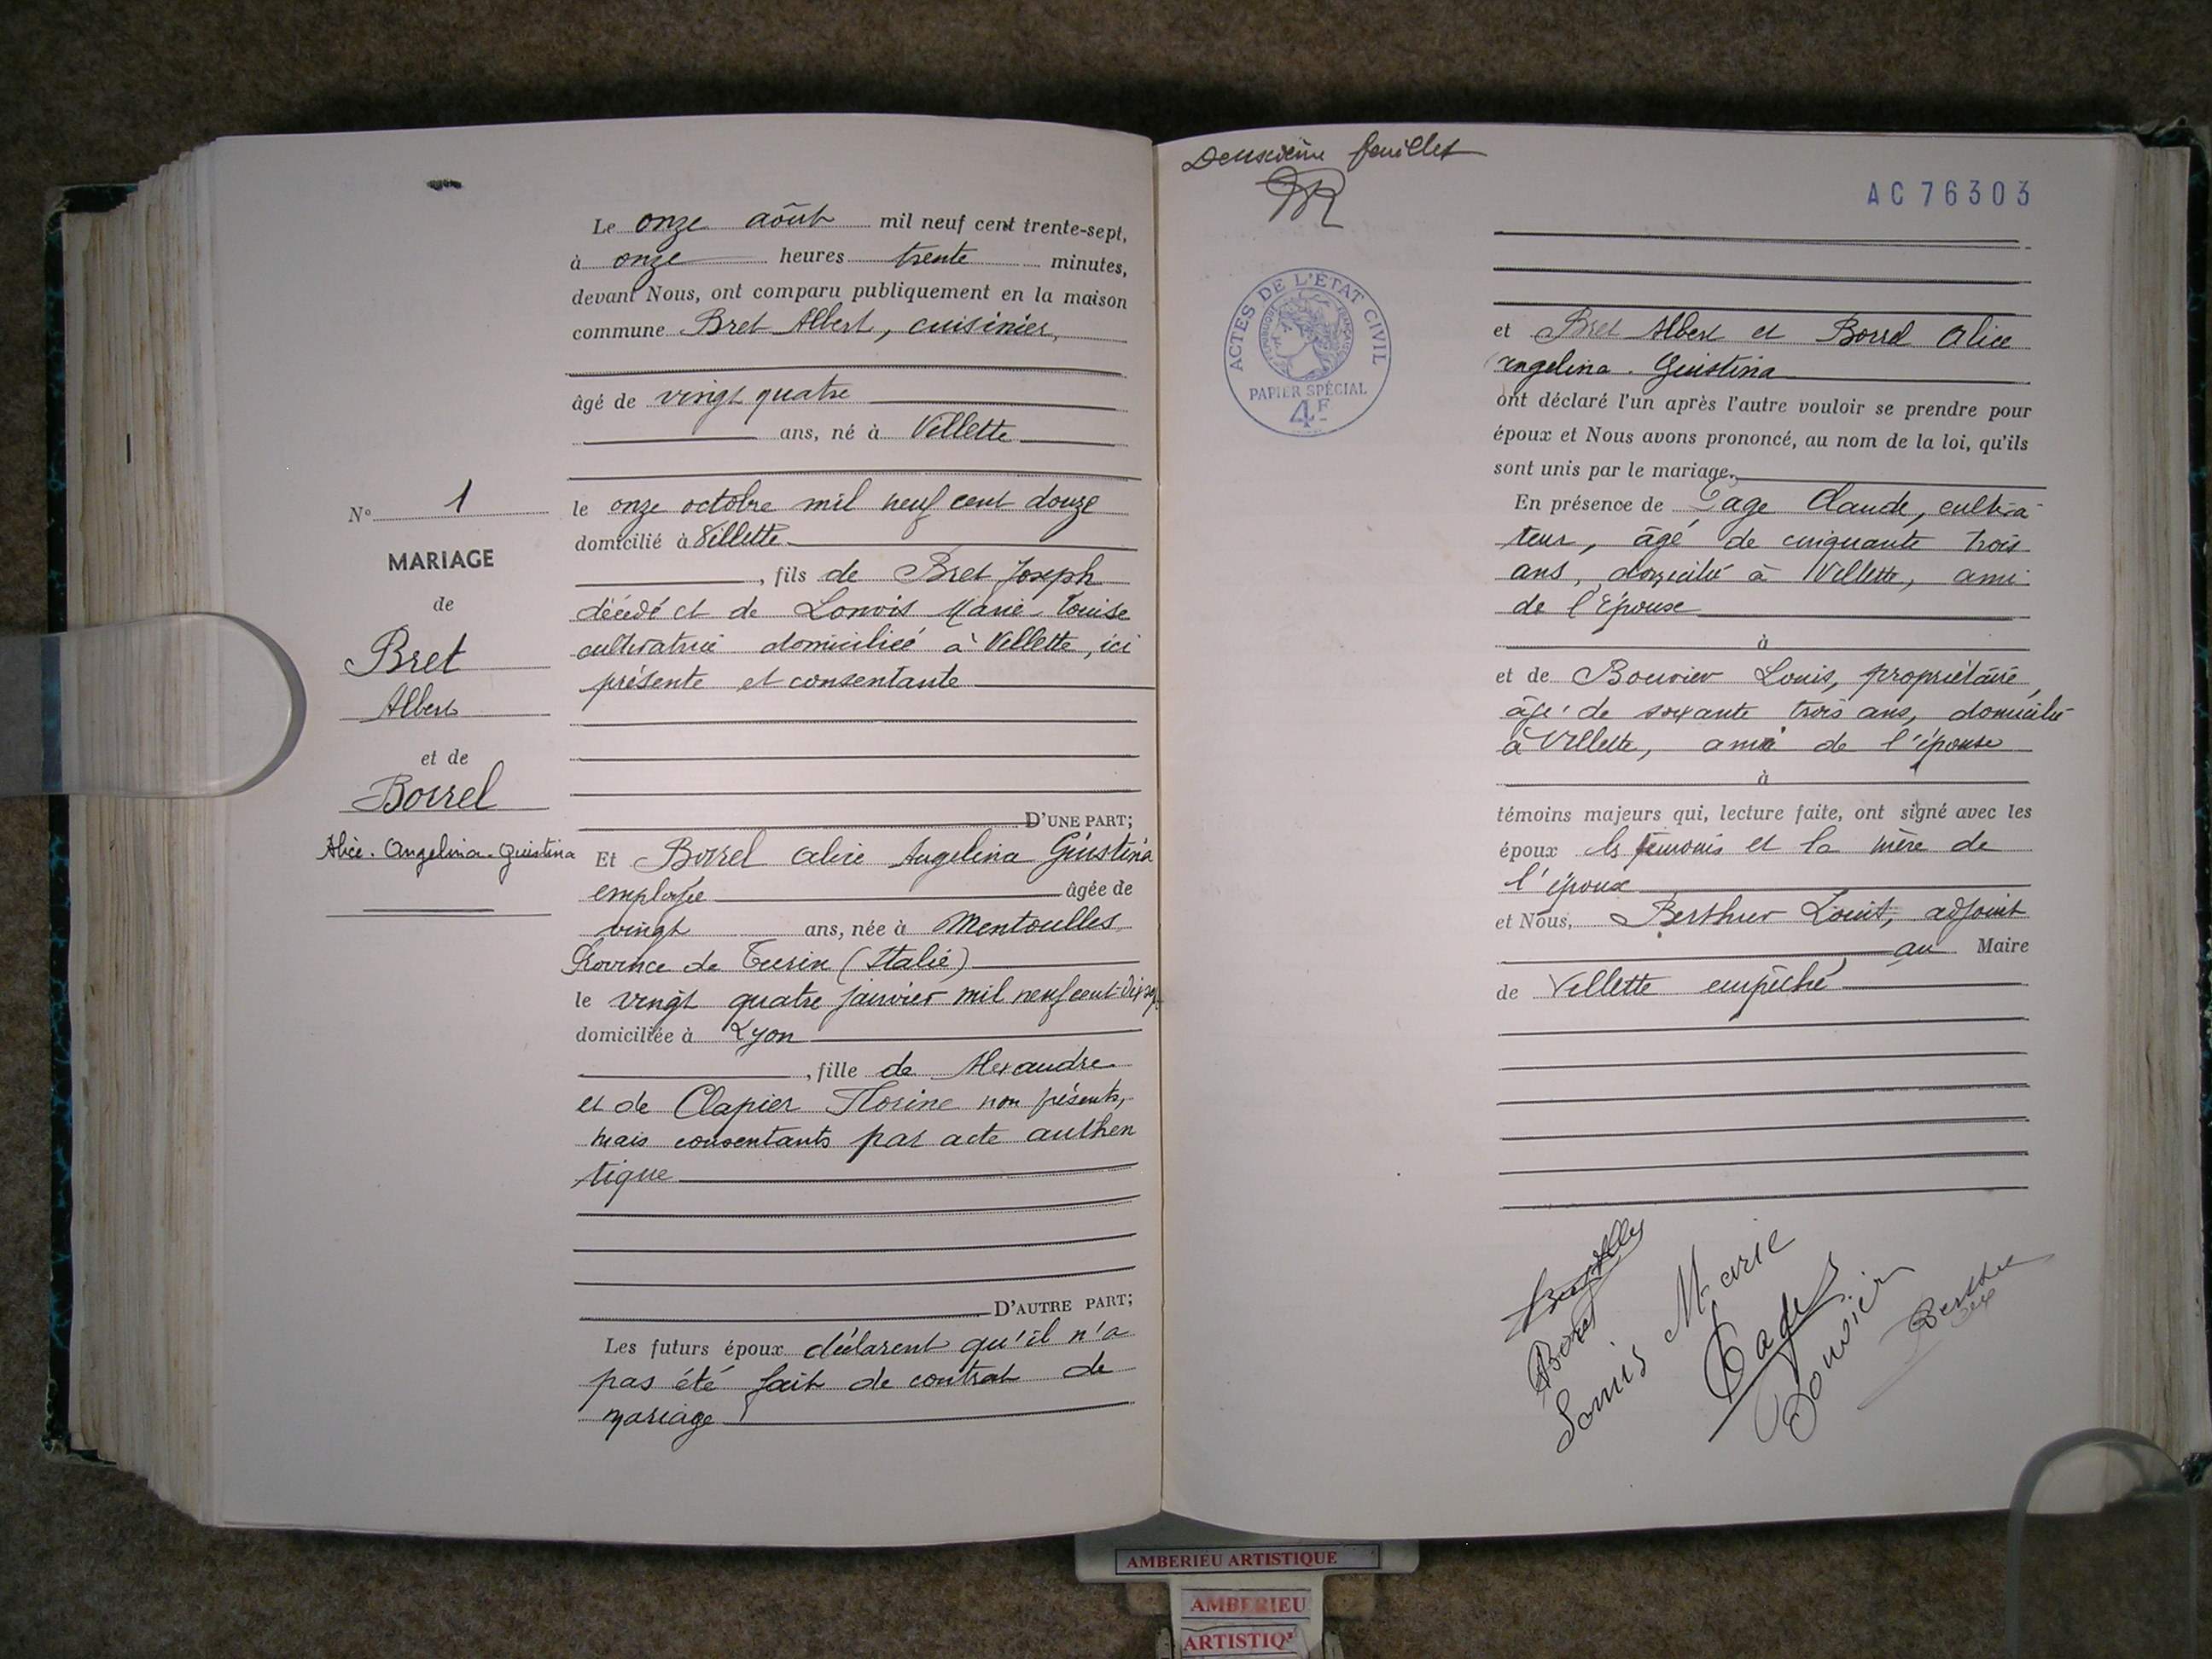 Le onze août mil neuf cent trente-sept,
à onze heures trente minutes,
devant Nous, ont comparu publiquement en la maison
commune Bret Albert, cuisinier,
âgé de vingt quatre
ans, né à Villette
le onze octobre mil neuf cent douze
domicilié à Villette
, fils de Bret Joseph
décédé et de Marie Louise
cultivatrice domiciliée à Villette, ici
présente et consentante
D'UNE PART;
N° 1
MARIAGE
de
Bret
Albert
et de
Borrel
Alice. Angelina. Giustina
Et Borrel Alice Angelina Giustina
employée âgée de
vingt ans, née à Mentoulles
Province de Turin (Italie)
le vingt quatre janvier mil neuf cent dix sept
domiciliée à Lyon
, fille de Alexandre
et de Clapier Florine non présents,
mais consentants par acte authen
tique
D'AUTRE PART;
Les futurs époux déclarent qu'il n'a
pas été fait de contrat de
mariage
Deuxième feuillet
AC 76303
ACTES DE L'ÉTAT CIVIL
RÉPUBLIQUE FRANÇAISE
PAPIER SPÉCIAL
4F
et Bret Albert et Borrel Alice
Angelina. Giustina
ont déclaré l'un après l'autre vouloir se prendre pour
époux et Nous avons prononcé, au nom de la loi, qu'ils
sont unis par le mariage.
En présence de Page Claude, cultiva
teur, âgé de cinquante trois
ans, domicilié à Villette, ami
de l'épouse
à
et de Bouvier Louis, propriétaire,
âgé de soixante trois ans, domicilié
à Villette, ami de l'épouse
à
témoins majeurs qui, lecture faite, ont signé avec les
époux ls témoins et la mère de
l'époux
et Nous, Berthier Louis, adjoint
au Maire
de Villette empêché
Borrel
Marie
Bouvier
AMBERIEU ARTISTIQUE
AMBERIEU
ARTISTIQ